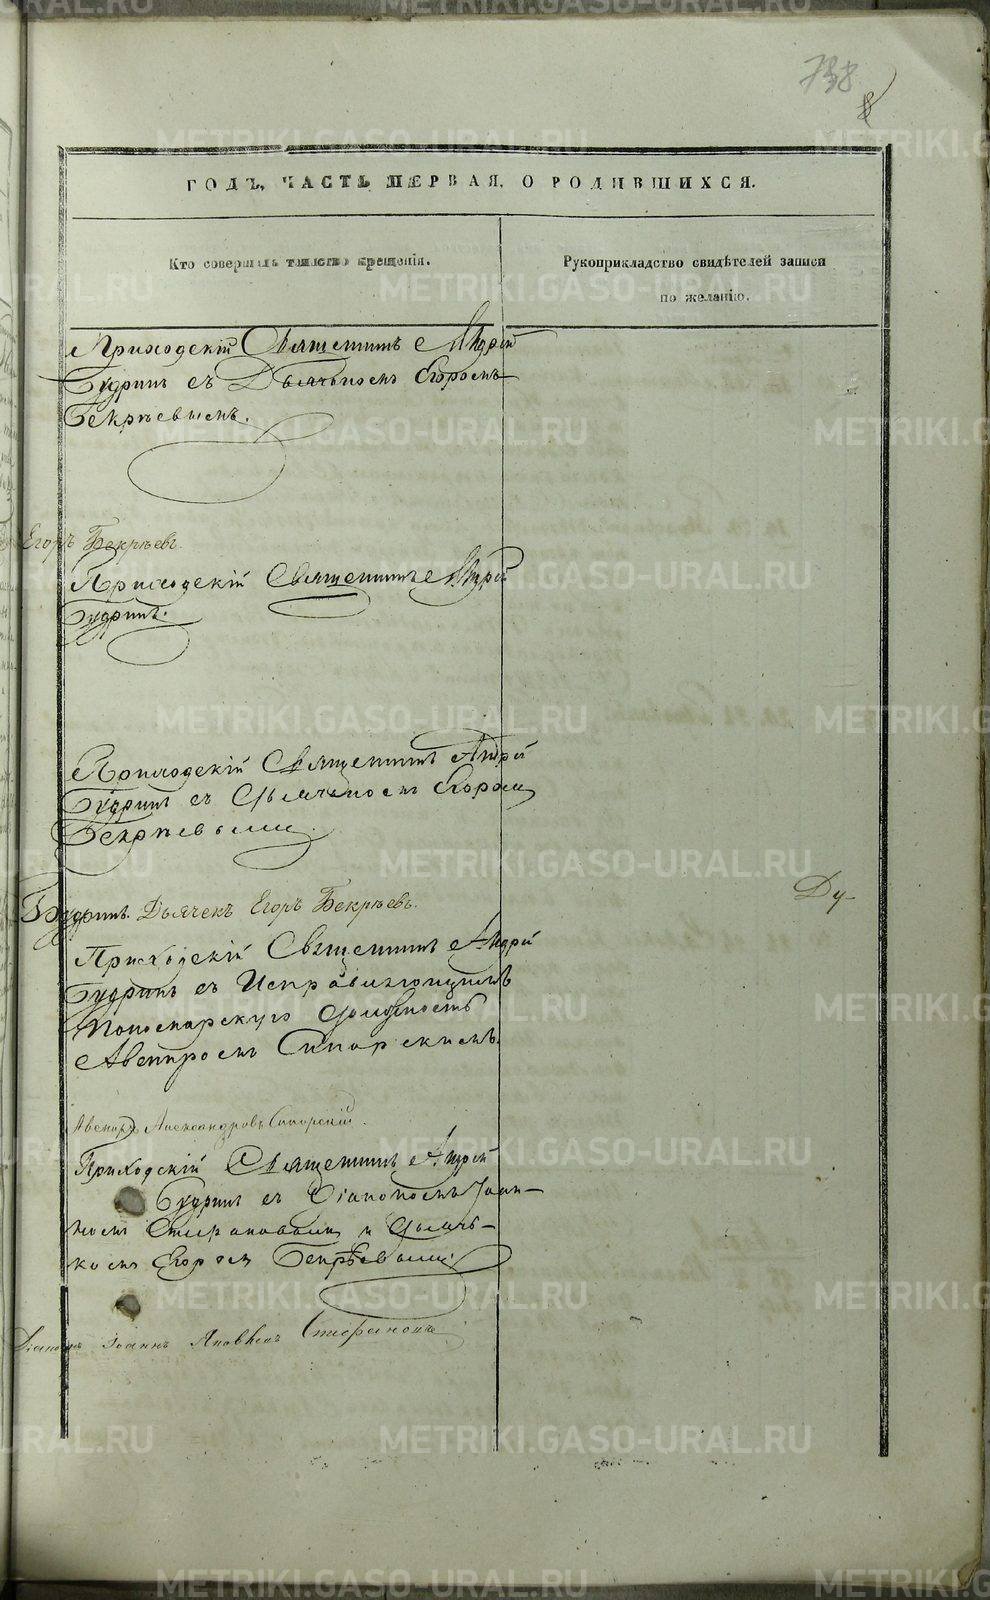 738
8
ГОДЪ, ЧАСТЬ ПЕРВАЯ, О РОДИВШИХСЯ.
Кто совершалъ таинство крещенія.
Рукоприкладство свидѣтелей записи
по желанію.
Приходскій Священникъ Андрей
Будринъ съ Дьячькомъ Егоромъ
Бекрѣевымъ.
Егоръ Бекрѣевъ.
Приходскій Священникъ Андрей
Будринъ.
Приходскій Священникъ Андрей
Будринъ съ Дьячкомъ Егоромъ
Бекрѣевымъ.
Ду-
Будринъ. Дьячекъ Егоръ Бекрѣевъ.
Приходскій Священникъ Андрей
Будринъ съ Исправляющимъ
Пономарскую должность
Авениромъ
Александровъ
Приходскій Священникъ Андрей
Будринъ съ Діакономъ Іоан-
номъ Стефановымъ и Дьячь-
комъ Егоромъ Бекрѣевымъ.
Діаконъ Іоаннъ Стефановъ
METRIKI.GASO-URAL.RU